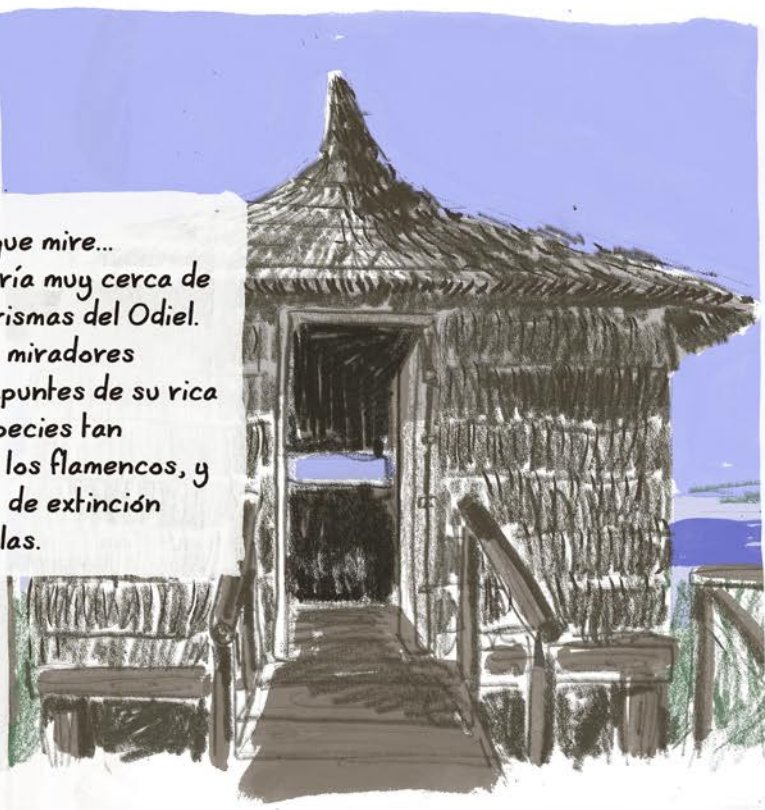 ue mire...
ría muy cerca de
rismas del Odiel.
miradores
puntes de su rica
pecies tan
los flamencos, y
de extinción
las.